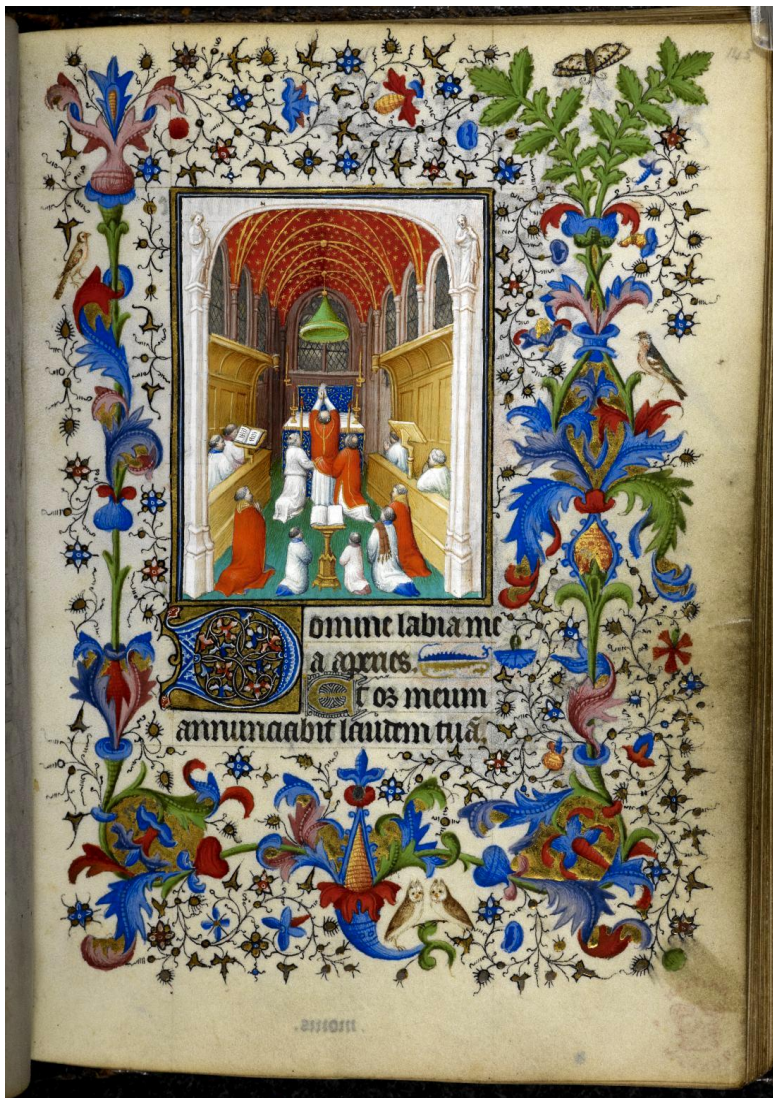 Domine labia me
a aperies.
Et os meum
annunciabit laudem tuã.